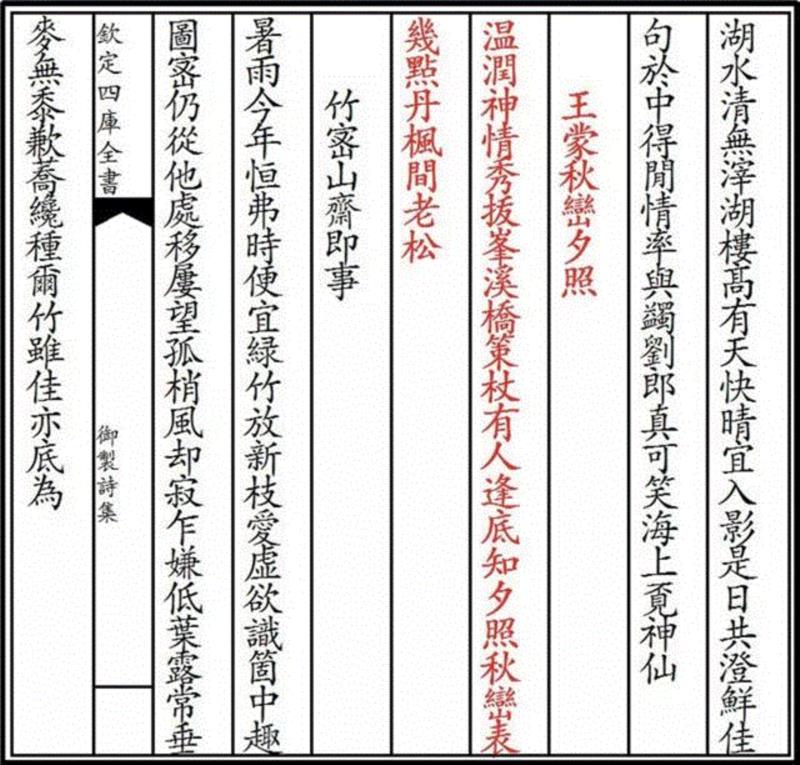 湖水清無滓湖樓髙有天快晴宜入影是日共澄鮮佳
句於中得閒情率與蠲劉郎真可笑海上覔神仙
王蒙秋巒夕照
温潤神情秀拔峯溪橋策杖有人逢底知夕照秋巒表
幾點丹楓間老松
竹宻山齋即事
暑雨今年恒弗時便宜緑竹放新枝愛虚欲識箇中趣
圖宻仍從他處移屢望孤梢風却寂乍嫌低葉露常垂
欽定四庫全書
御製詩集
麥無黍歉蕎纔種爾竹雖佳亦底為